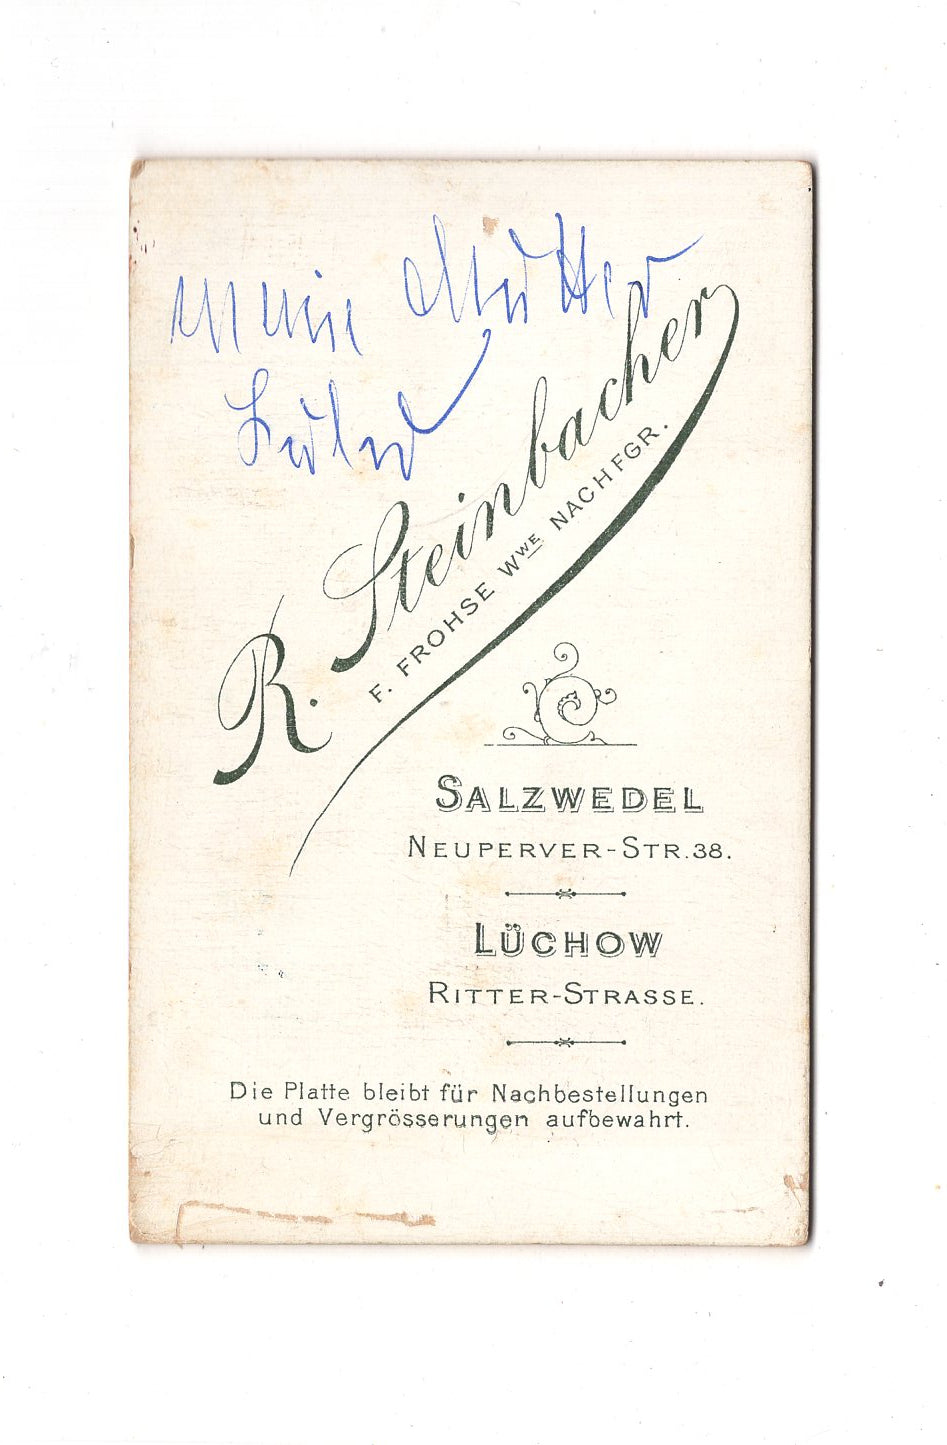 Meine Mutter
R. Steinbacher
F. FROHSE WWE NACHFGR.
SALZWEDEL
NEUPERVER-STR.38.
LÜCHOW
RITTER-STRASSE.
Die Platte bleibt für Nachbestellungen
und Vergrösserungen aufbewahrt.